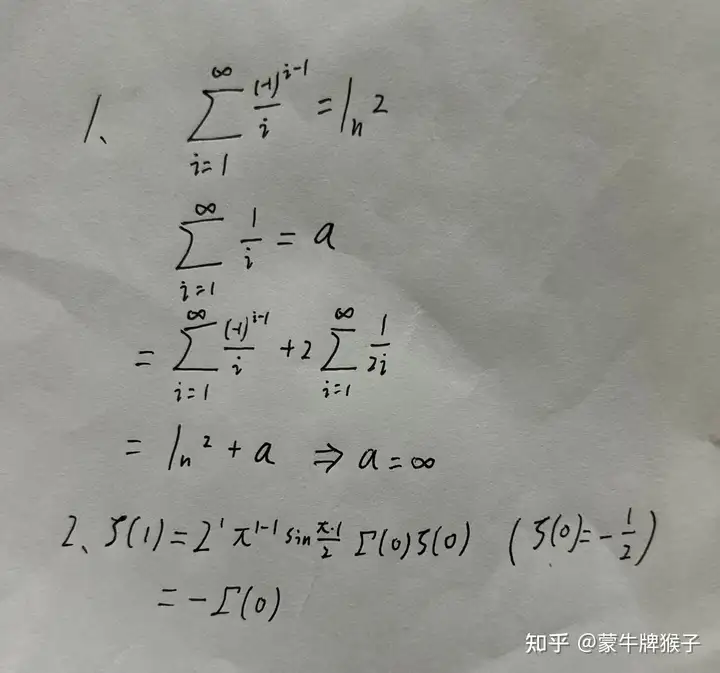 1、 ∑_{i=1}^{∞} (-1)^{i-1}/i = ln 2
∑_{i=1}^{∞} 1/i = a
= ∑_{i=1}^{∞} (-1)^{i-1}/i + 2 ∑_{i=1}^{∞} 1/2i
= ln 2 + a ⇒ a = ∞
2、 ζ(1) = 2^1 π^{1-1} sin π·1/2 Γ(0) ζ(0) ( ζ(0) = -1/2 )
= -Γ(0)
知乎 @蒙牛牌猴子